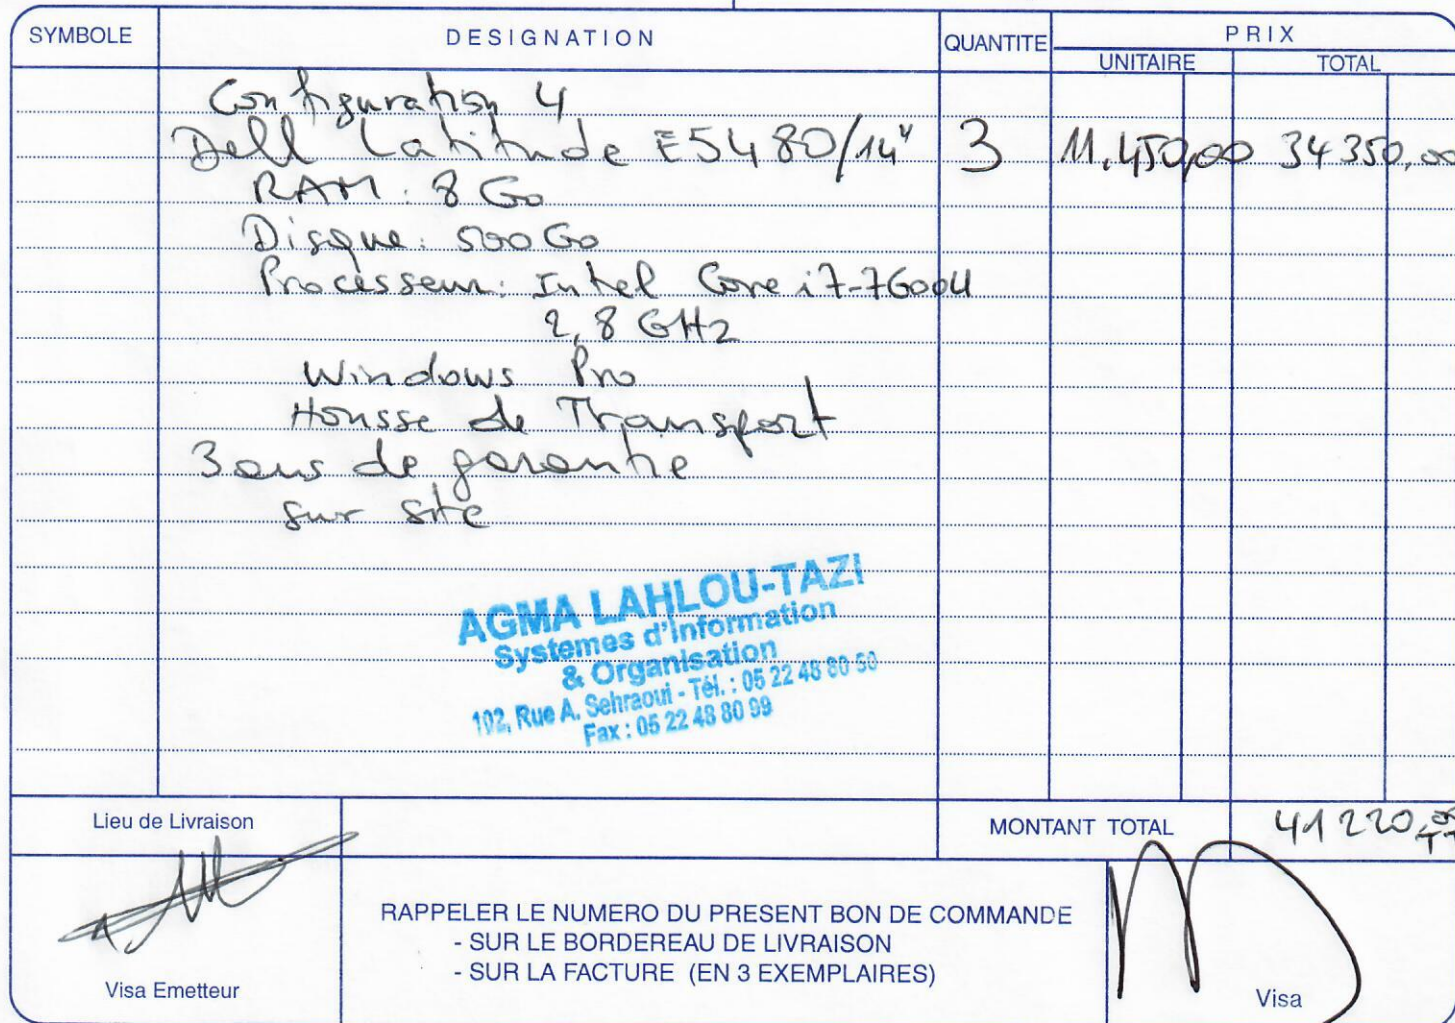 SYMBOLE DESIGNATION QUANTITE PRIX
UNITAIRE TOTAL
Configuration 4
Dell Latitude E5480/14" 3 11.450,00 34350,00
RAM : 8 Go
Disque : 500 Go
Processeur : Intel Core i7-7600U
2,8 GHz
Windows Pro
Housse de Transport
3 ans de garantie
sur site
AGMA LAHLOU-TAZI
Systemes d'Information
& Organisation
102, Rue A. Sehraoui - Tél. : 05 22 48 80
Fax : 05 22 48 80 99
Lieu de Livraison MONTANT TOTAL 41220,00
RAPPELER LE NUMERO DU PRESENT BON DE COMMANDE
- SUR LE BORDEREAU DE LIVRAISON
- SUR LA FACTURE (EN 3 EXEMPLAIRES)
Visa Emetteur Visa